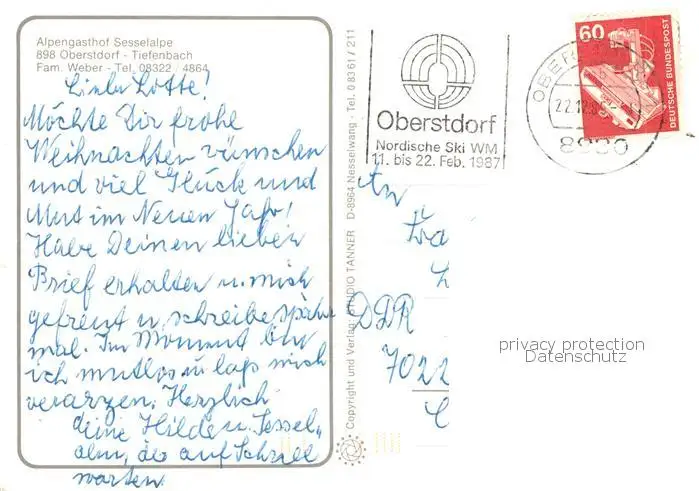 Alpengasthof Sesselalpe
898 Oberstdorf - Tiefenbach
Fam. Weber - Tel. 08322 / 4864
Liebe Lotte!
Möchte Dir frohe
Weihnachten wünschen
und viel Glück und
Mut im Neuen Jahr!
Habe Deinen lieben
Brief erhalten u. mich
gefreut u. schreibe später
mal. Im Moment bin
ich mutlos u. lass mich
verarzen. Herzlich
deine Hilde u. Sessel„
alm, die auf Schnee
warten.
Copyright und Verlag: STUDIO TANNER D-8964 Nesselwang - Tel. 08361 / 211
Oberstdorf
Nordische Ski WM
11. bis 22. Feb. 1987
8980
60
DEUTSCHE BUNDESPOST
An
DDR
7022
privacy protection
Datenschutz